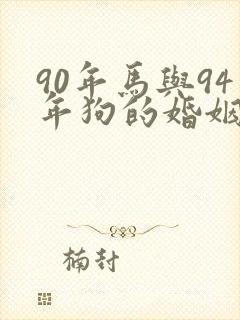 90年馬與94
年狗的婚姻
楠封